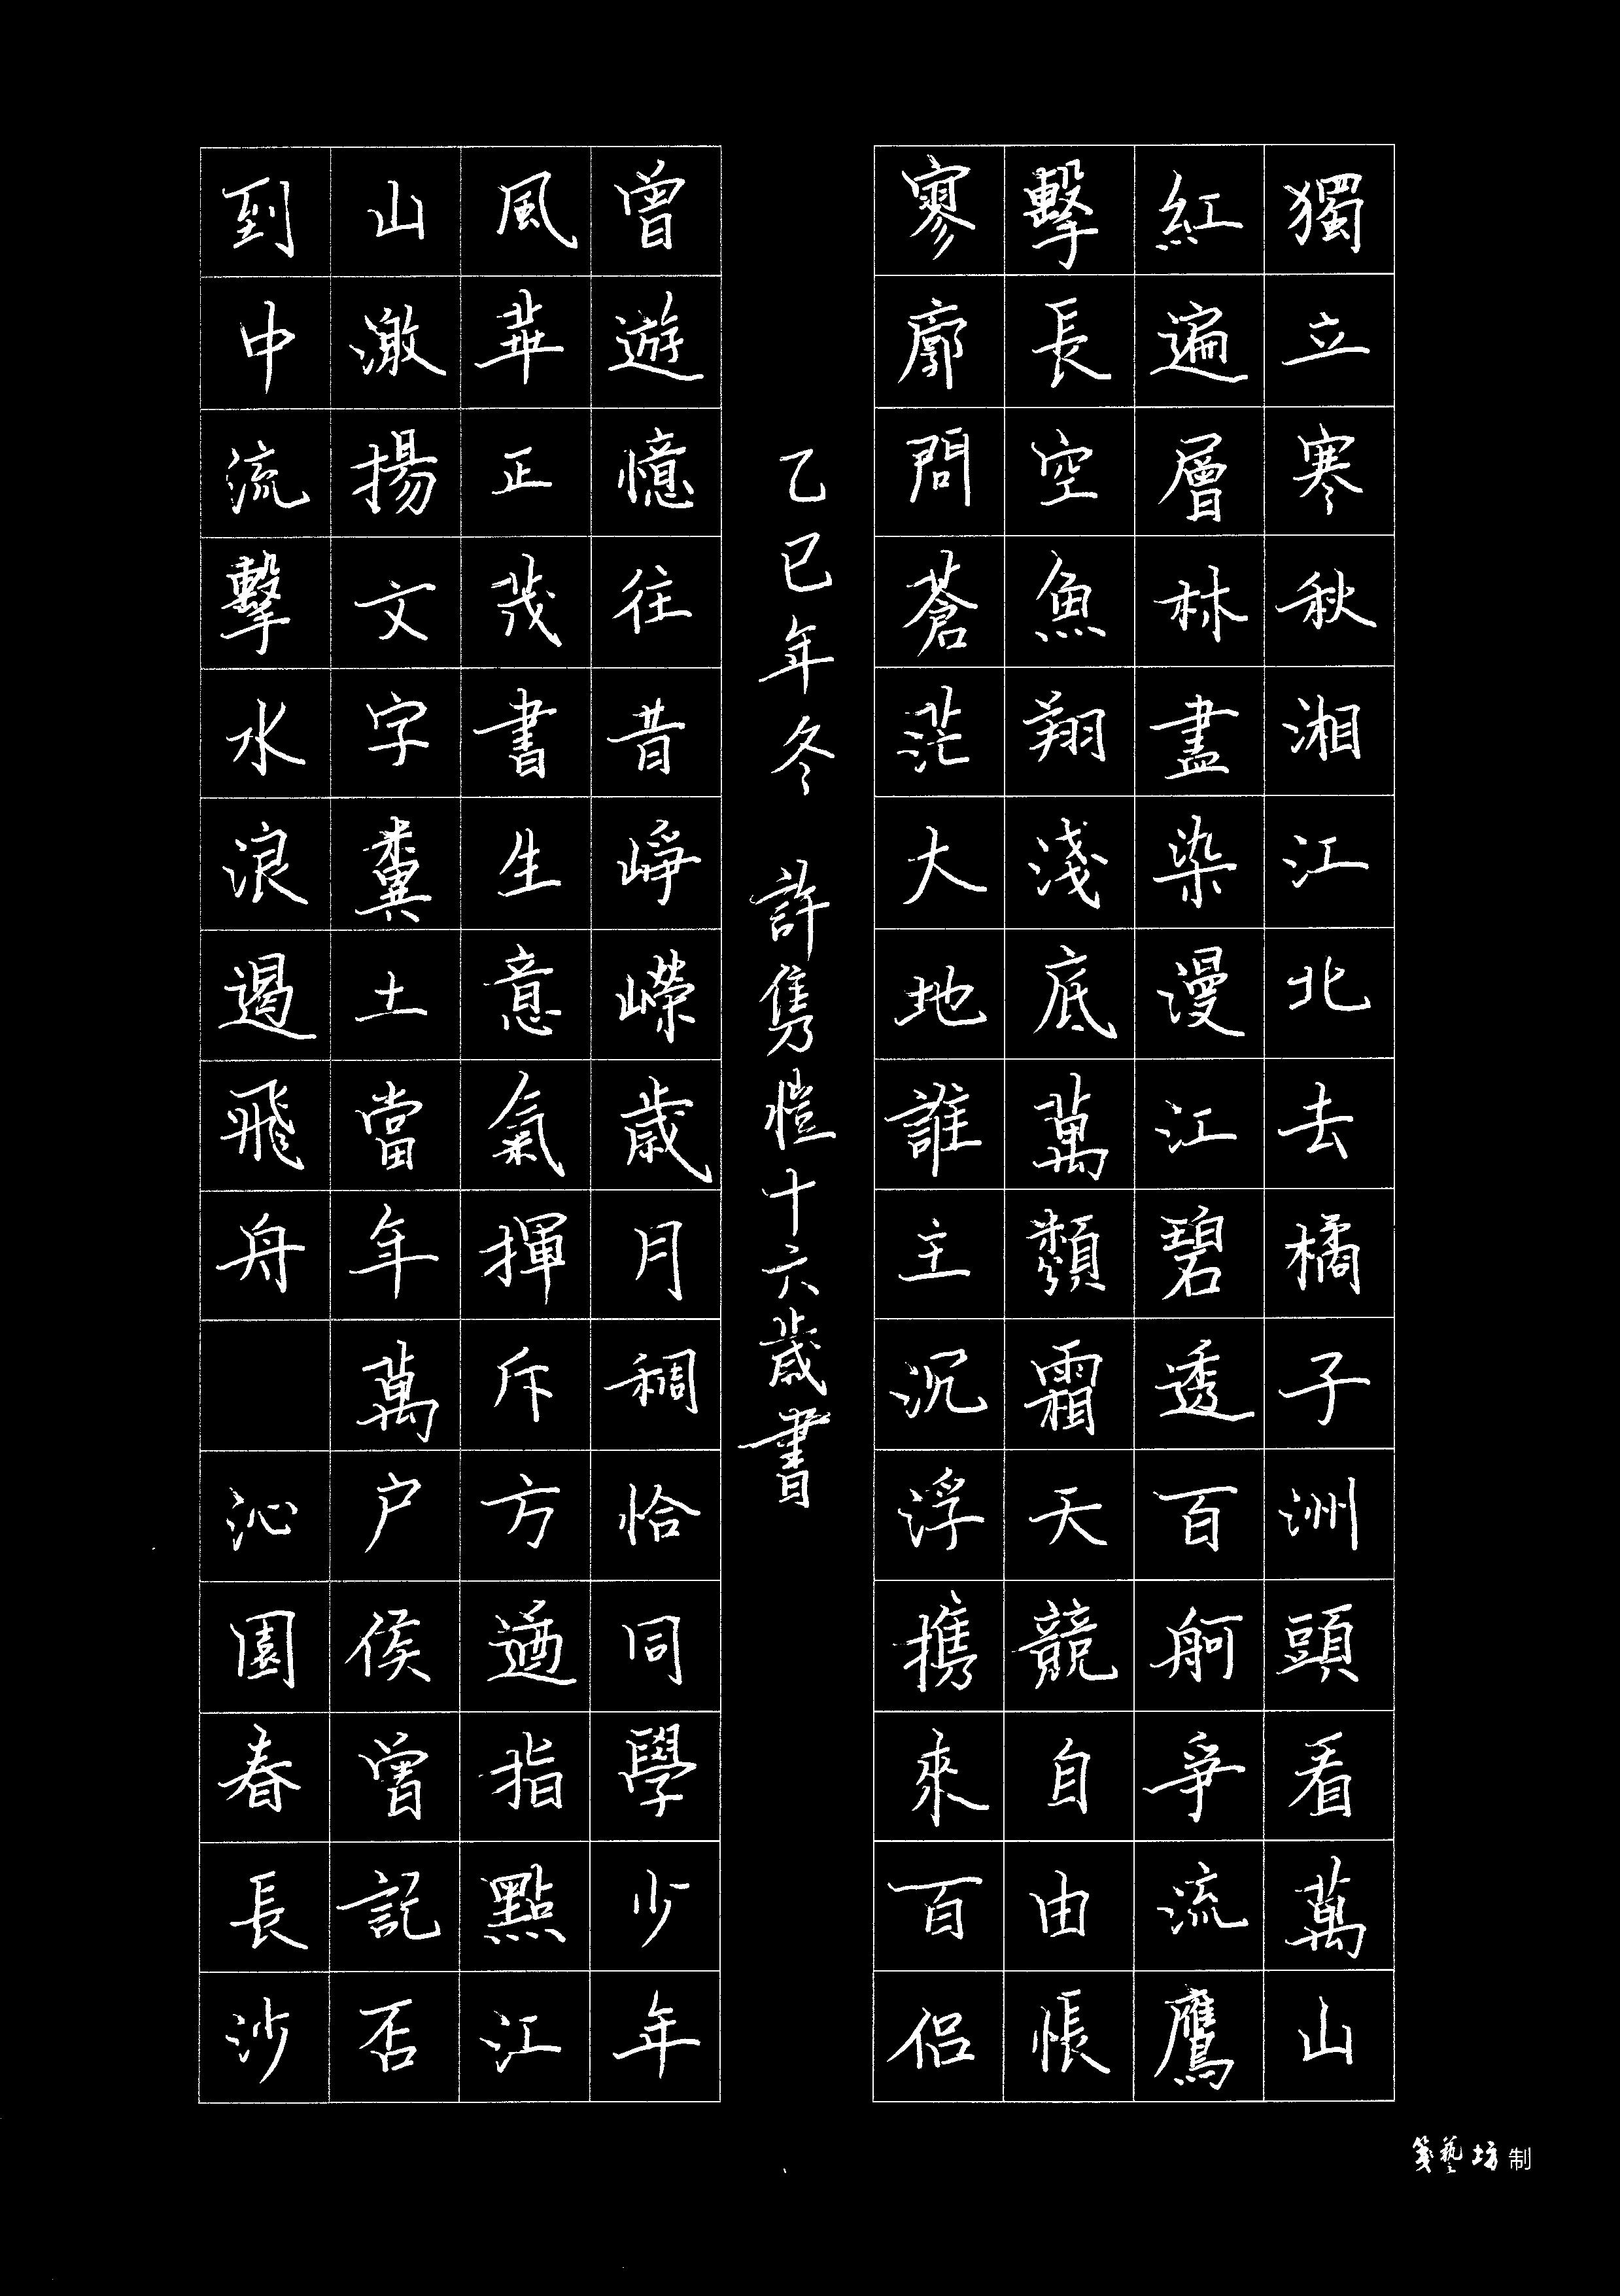 獨立寒秋湘江北去橘子洲頭看萬山
紅遍層林盡染漫江碧透百舸爭流鷹
擊長空魚翔淺底萬類霜天競自由悵
寥廓問蒼茫大地誰主沉浮携來百侶
乙巳年冬 許隽愷十六歲書
曾遊憶往昔崢嶸歲月稠恰同學少年
風華正茂書生意氣揮斥方遒指點江
山激揚文字糞土當年萬户侯曾記否
到中流擊水浪遏飛舟 沁園春長沙
箋藝坊制